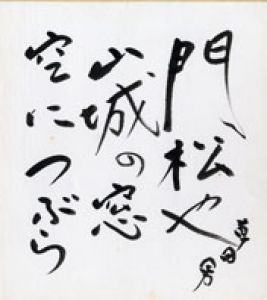 門松や
山城の窓
空につぶら
草田男